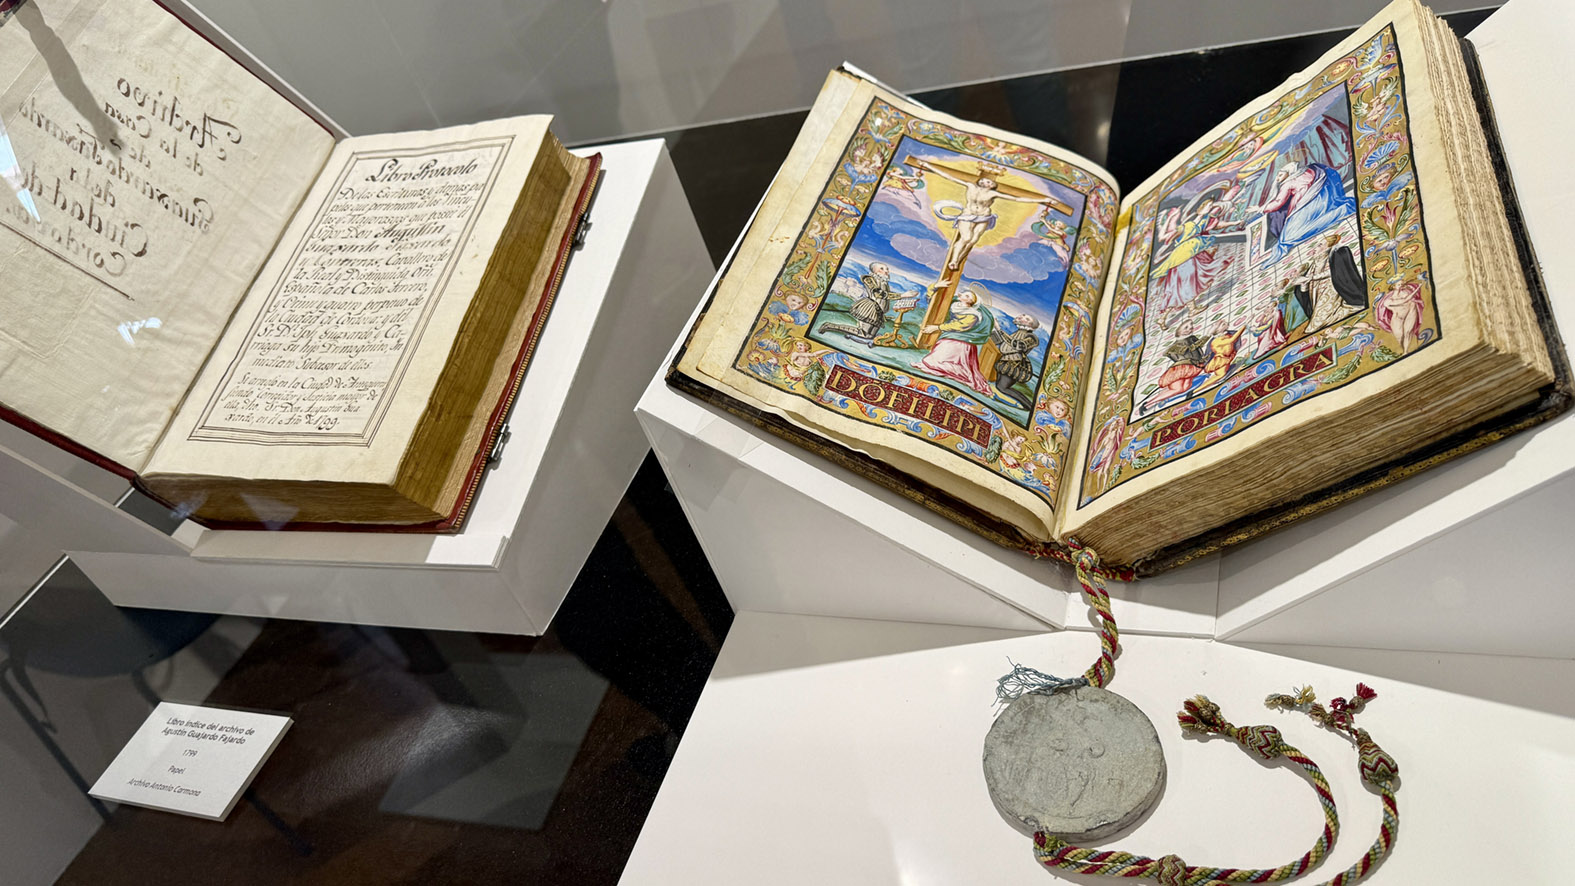 Archivo
de la
Casa
de los
Guaxardo
del
Ciudad de
Cordova
Libro Protocolo
De las Escrituras y demas pa
peles que pertenecen a los Vincu
los y Mayorazgos que posee el
Señor Don Agustin
Guaxardo Faxardo
y Contreras, Caballero de
la Real y Distinguida Orñ.
Española de Carlos tercero,
y Veinte y quatro perpetuo de
la Ciudad de Cordova; y del
Sr. Dn. Guaxardo y Ca
su hijo Primogenito, in
mediato Subcesor à ellos
Se arreglo en la Ciudad de Antequera
siendo Corregidor y Justicia mayor de
ella, dho. Sr. Dn. Agustin Gua
xardo, en el Año de 1799.
DO FILIPE
POR LA GRA
Libro índice del archivo de
Agustín Guajardo Fajardo
1799
Papel
Archivo Antonio Carmona